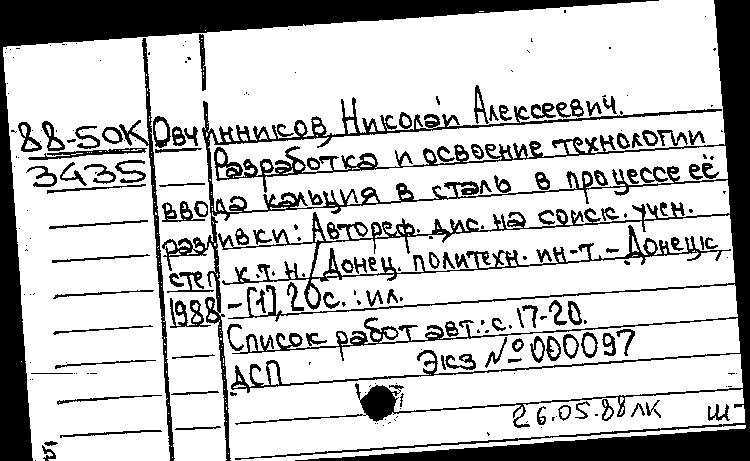 88-50К Овчинников, Николай Алексеевич.
3435 Разработка и освоение технологии
ввода кальция в сталь в процессе её
разливки: Автореф. дис. на соиск. учен.
степ. к.т.н. / Донец. политехн. ин-т. - Донецк,
1988. - [1], 20с. : ил.
Список работ авт.: с. 17-20.
ДСП Экз № 000097
26.05.88 ЛК Ш-